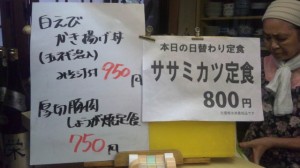 白えび
かき揚げ丼
みそ汁付 950円
厚切豚肉
しょうが焼定食
750円
本日の日替わり定食
ササミカツ定食
800円